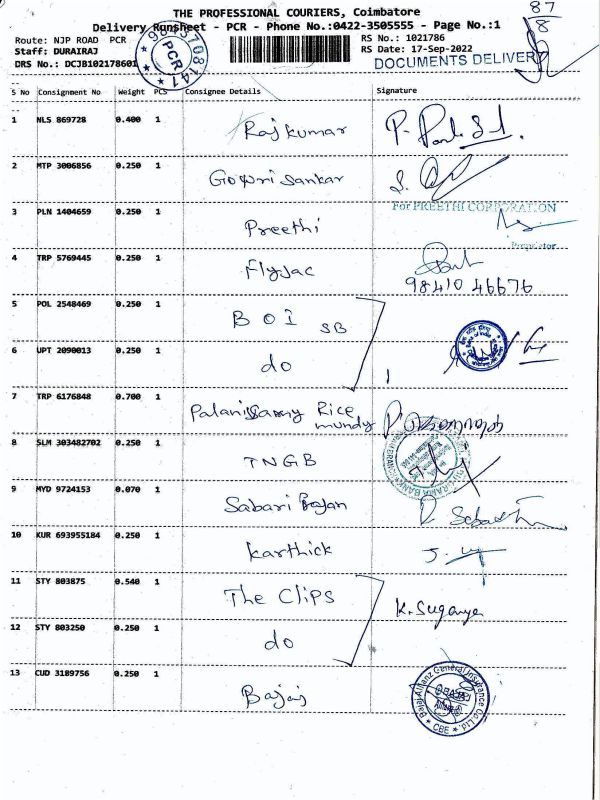 THE PROFESSIONAL COURIERS, Coimbatore
87
8
Delivery Runsheet - PCR - Phone No.:0422-3505555 - Page No.:1
Route: NJP ROAD PCR
RS No.: 1021786
Staff: DURAIRAJ
RS Date: 17-Sep-2022
DRS No.: DCJB102178601
DOCUMENTS DELIVERY
PCR
S No Consignment No Weight PCS Consignee Details Signature
1 NLS 869728 0.400 1 Rajkumar
2 MTP 3006856 0.250 1 Gowri Sankar
For PREETHI CORPORATION
3 PLN 1404659 0.250 1 Preethi
Proprietor
4 TRP 5769445 0.250 1 Flyjac
98410 46676
5 POL 2548469 0.250 1 BOI SB
6 UPT 2090013 0.250 1 do
7 TRP 6176848 0.700 1 Palanisamy Rice mundy
8 SLM 303482702 0.250 1 TNGB
9 MYD 9724153 0.070 1 Sabari Rajan
10 KUR 693955184 0.250 1 Karthick
11 STY 803875 0.540 1 The Clips K. Suganya
12 STY 803250 0.250 1 do
13 CUD 3189756 0.250 1 Bajaj
Bajaj Allianz General Insurance Co. Ltd.
CBE